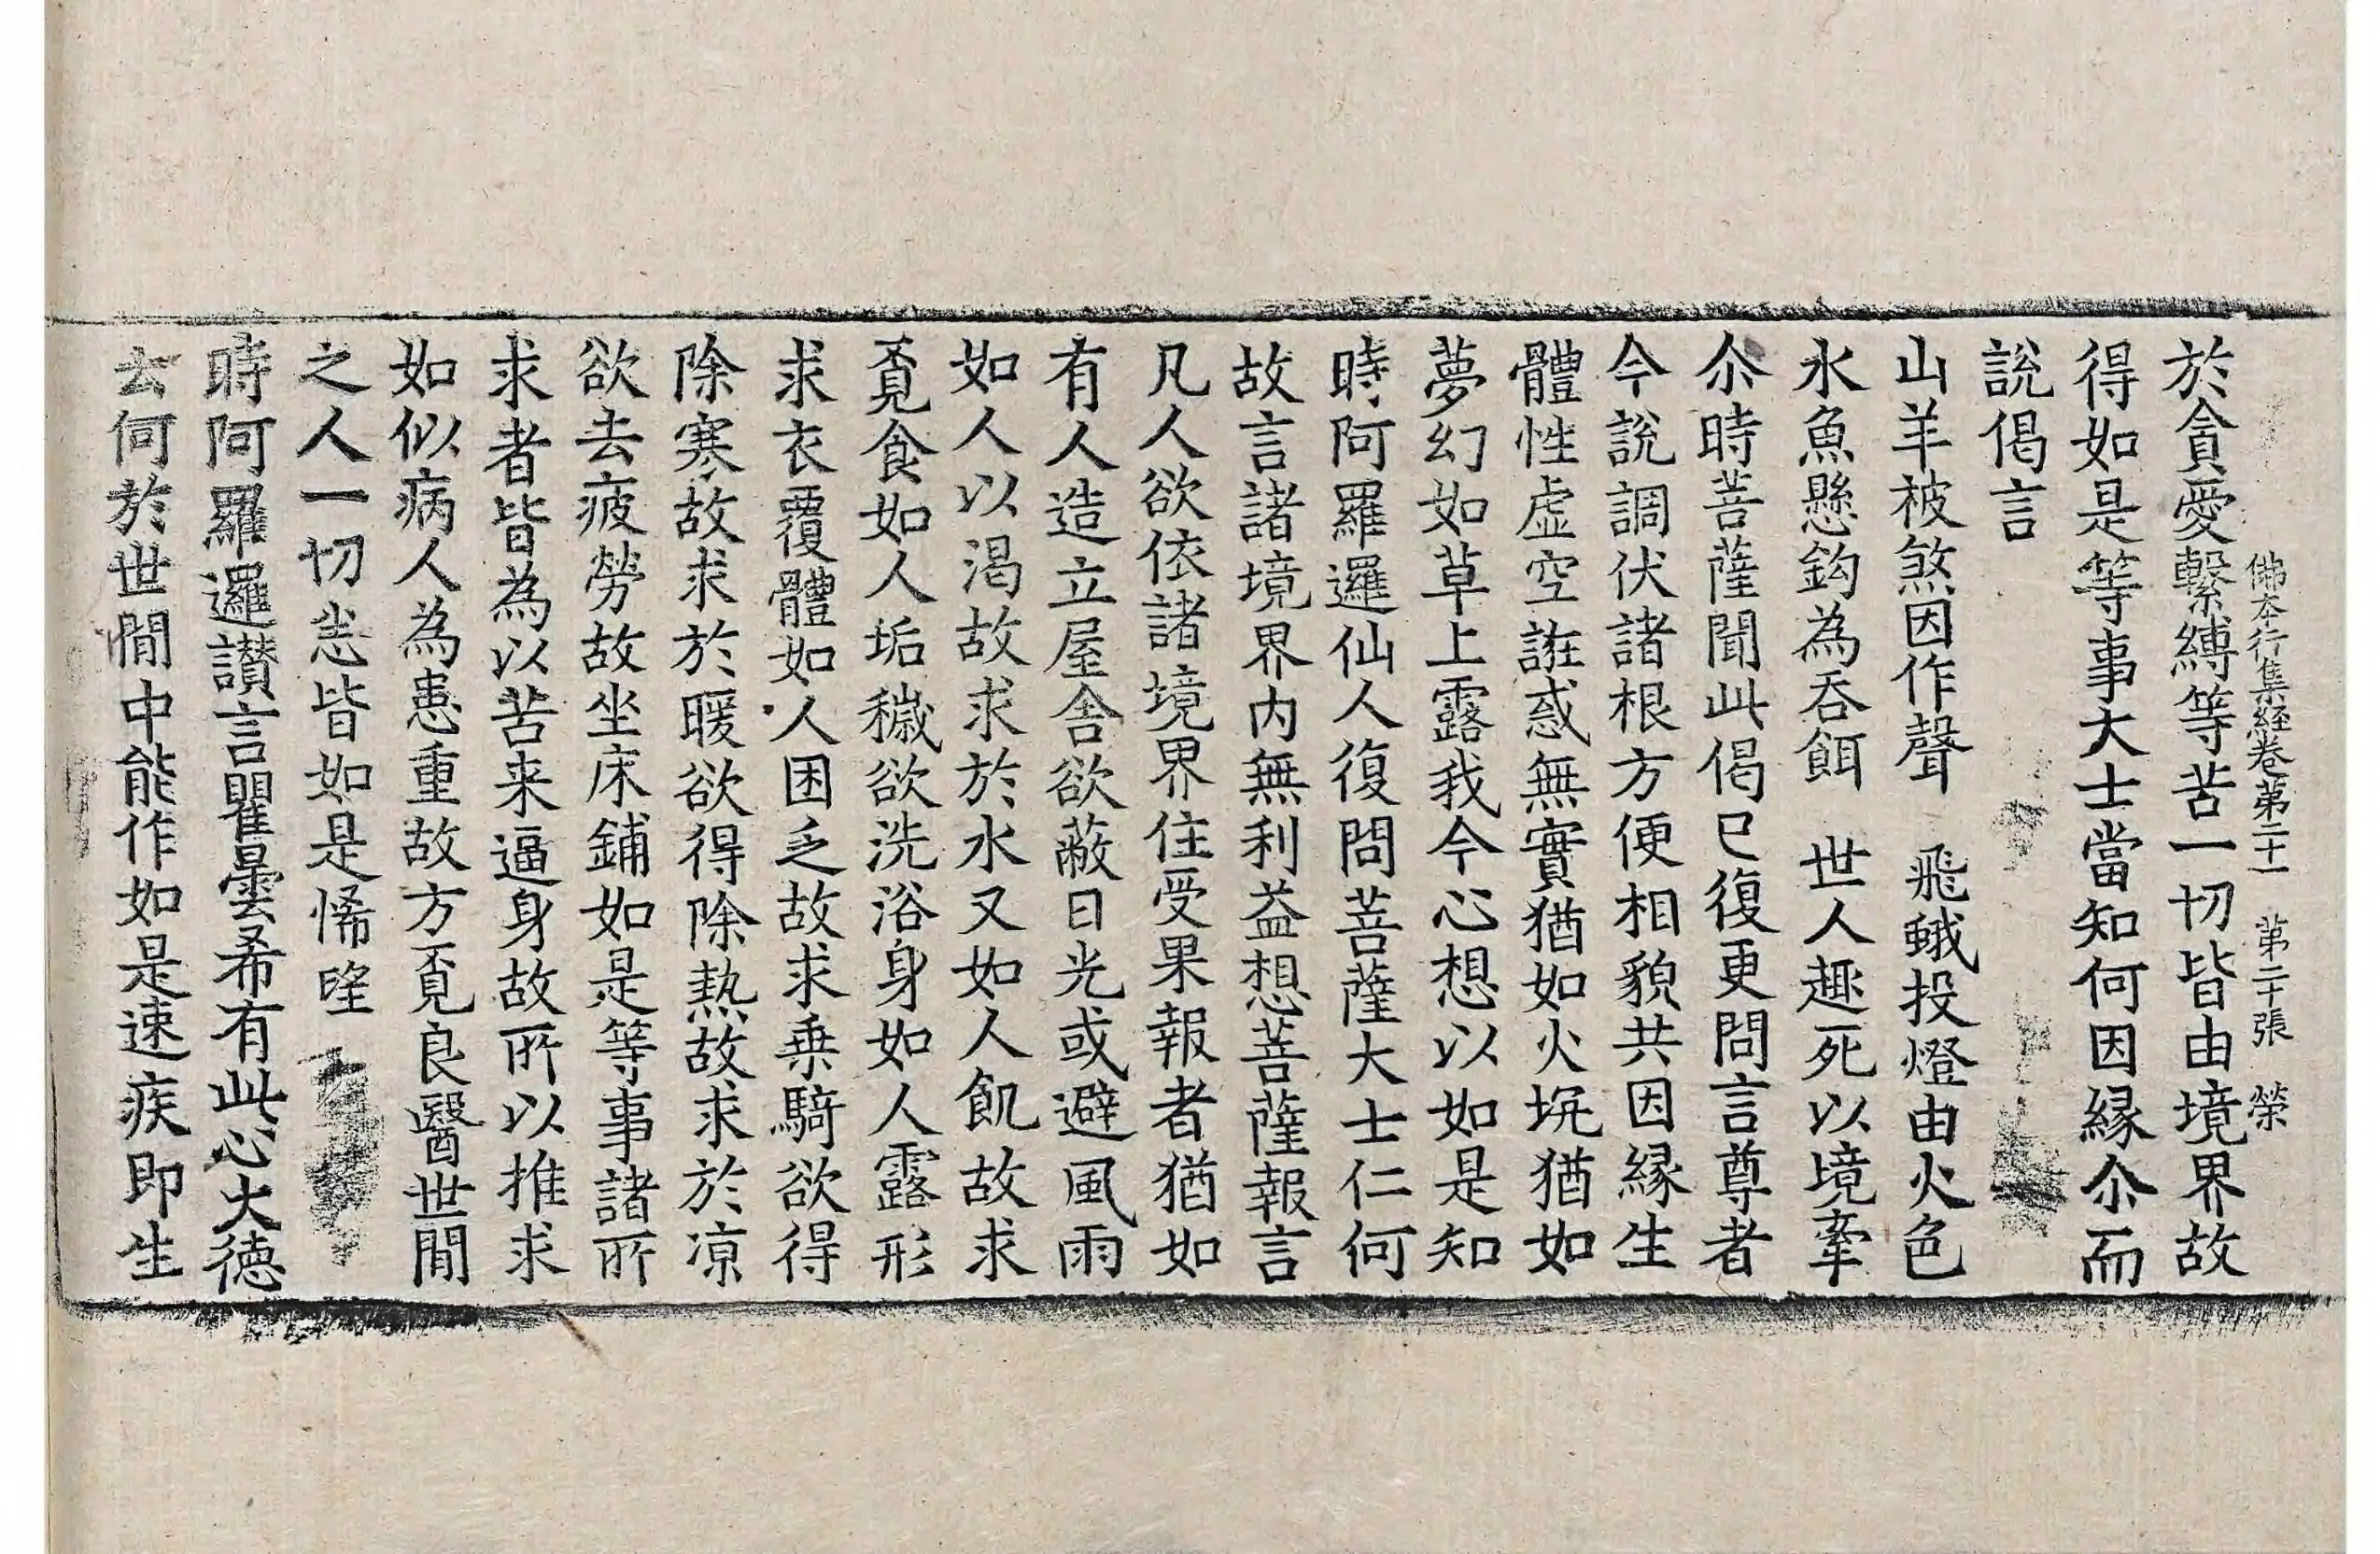 佛本行集經卷第二十一　第二十張　榮
於貪愛繫縛等苦一切皆由境界故
得如是等事大士當知何因縁尒而
說偈言
山羊被煞因作聲　飛蛾投燈由火色
水魚懸鈎為吞餌　世人趣死以境牽
尒時菩薩聞此偈已復更問言尊者
今說調伏諸根方便相貌共因縁生
體性虛空誑惑無實猶如火坑猶如
夢幻如草上露我今心想以如是知
時阿羅邏仙人復問菩薩大士仁何
故言諸境界內無利益想菩薩報言
凡人欲依諸境界住受果報者猶如
有人造立屋舍欲蔽日光或避風雨
如人以渴故求於水又如人飢故求
覔食如人垢穢欲洗浴身如人露形
求衣覆體如人困乏故求乗騎欲得
除寒故求於暖欲得除熱故求於凉
欲去疲勞故坐床鋪如是等事諸所
求者皆為以苦来逼身故所以推求
如似病人為患重故方覔良醫世間
之人一切恙皆如是悕望
時阿羅邏讃言瞿曇希有此心大德
去何於世間中能作如是速疾即生